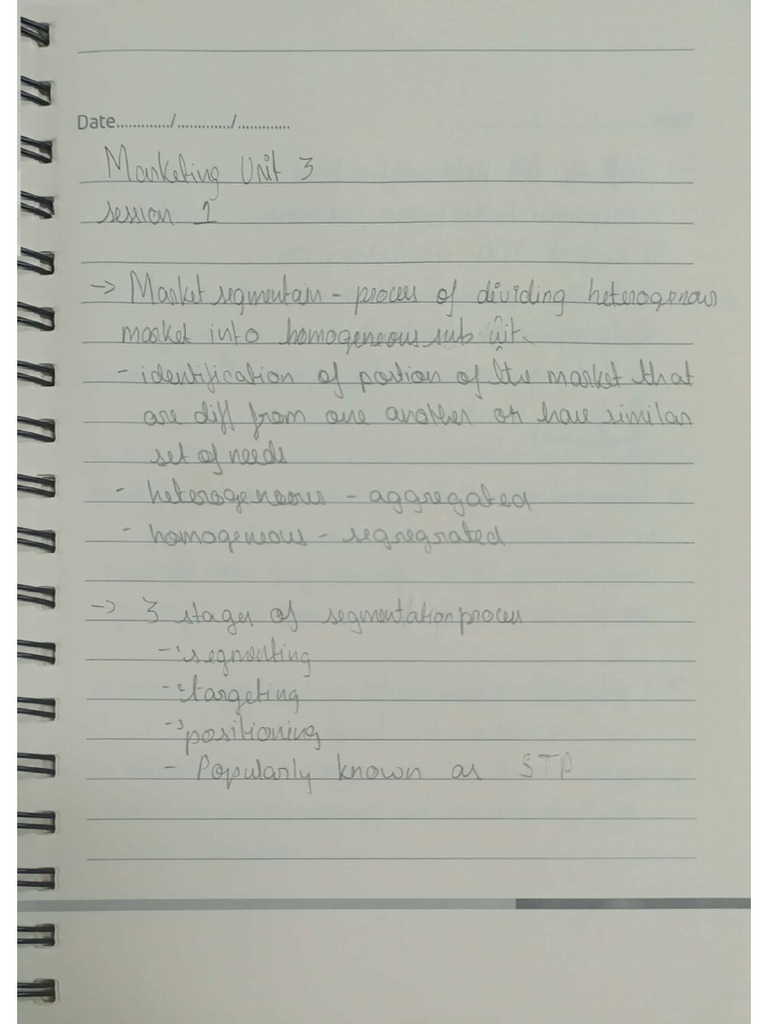 Date............/............/............
Marketing Unit 3
session 1
-> Market segmentain - process of dividing heterogenous
market into homogeneous sub uit.
- identification of portion of the market that
are diff from one another or have similar
set of needs
- heterogeneous - aggregated
- homogeneous - segregrated
-> 3 stages of segmentation process
-1 segmenting
-2 targeting
-3 positioning
- Popularly known as STP